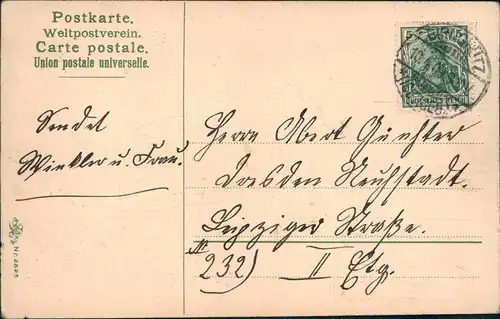 Postkarte.
Weltpostverein.
Carte postale.
Union postale universelle.
Sendet
Winkler u. Frau.
Herrn Albert Günther
Dresden Neustadt.
Leipziger Straße.
№
232) II Etg.
Nr. 2625
DEUTSCHES REICH